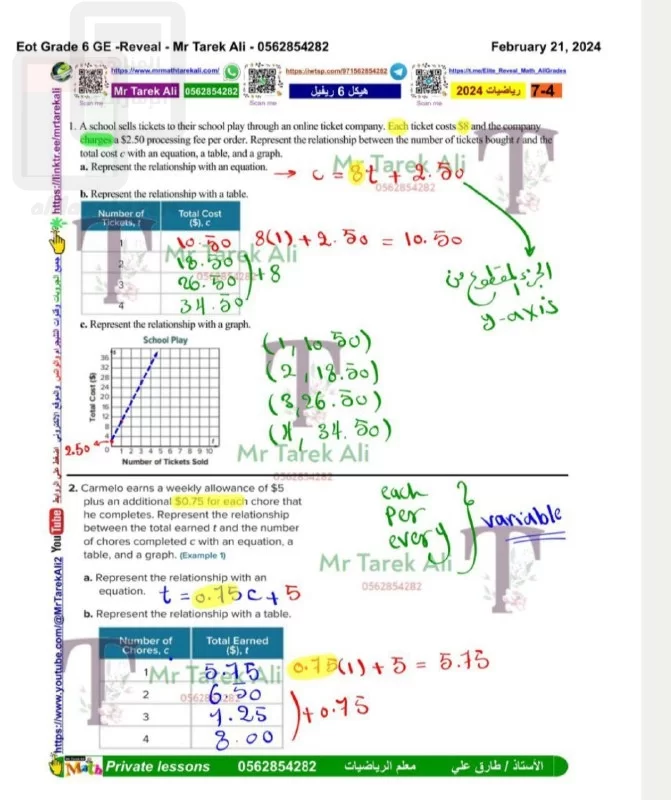 Eot Grade 6 GE -Reveal - Mr Tarek Ali - 0562854282
February 21, 2024
https://www.mrmathtarekali.com/
https://iwtsp.com/971562854282
https://t.me/Elite_Reveal_Math_AllGrades
Mr Tarek Ali 0562854282
هيكل 6 ريفيل
رياضيات 2024
7-4
Scan me
Scan me
Scan me
1. A school sells tickets to their school play through an online ticket company. Each ticket costs $8 and the company
charges a $2.50 processing fee per order. Represent the relationship between the number of tickets bought t and the
total cost c with an equation, a table, and a graph.
a. Represent the relationship with an equation. → c = 8t + 2.50
Mr Tarek Ali
0562854282
b. Represent the relationship with a table.
Number of Tickets, t
Total Cost ($), c
1 10.50 8(1) + 2.50 = 10.50
2 18.50
3 26.50 + 8
4 34.50
Mr Tarek Ali
0562854282
الجزء المقطوع من
y-axis
c. Represent the relationship with a graph.
School Play
Total Cost ($)
36
32
28
24
20
16
12
8
4
0 1 2 3 4 5 6 7 8 9 10
Number of Tickets Sold
2.50
(1, 10.50)
(2, 18.50)
(3, 26.50)
(4, 34.50)
Mr Tarek Ali
0562854282
2. Carmelo earns a weekly allowance of $5
plus an additional $0.75 for each chore that
he completes. Represent the relationship
between the total earned t and the number
of chores completed c with an equation, a
table, and a graph. (Example 1)
each
per
every
variable
Mr Tarek Ali
0562854282
a. Represent the relationship with an
equation. t = 0.75c + 5
b. Represent the relationship with a table.
Number of Chores, c
Total Earned ($), t
1 5.75 0.75(1) + 5 = 5.75
2 6.50
3 7.25 + 0.75
4 8.00
Mr Tarek Ali
0562854282
https://www.youtube.com/@MrTarekAli2 YouTube
https://linktr.ee/mrtarekali
Math Private lessons 0562854282 معلم الرياضيات الأستاذ / طارق علي